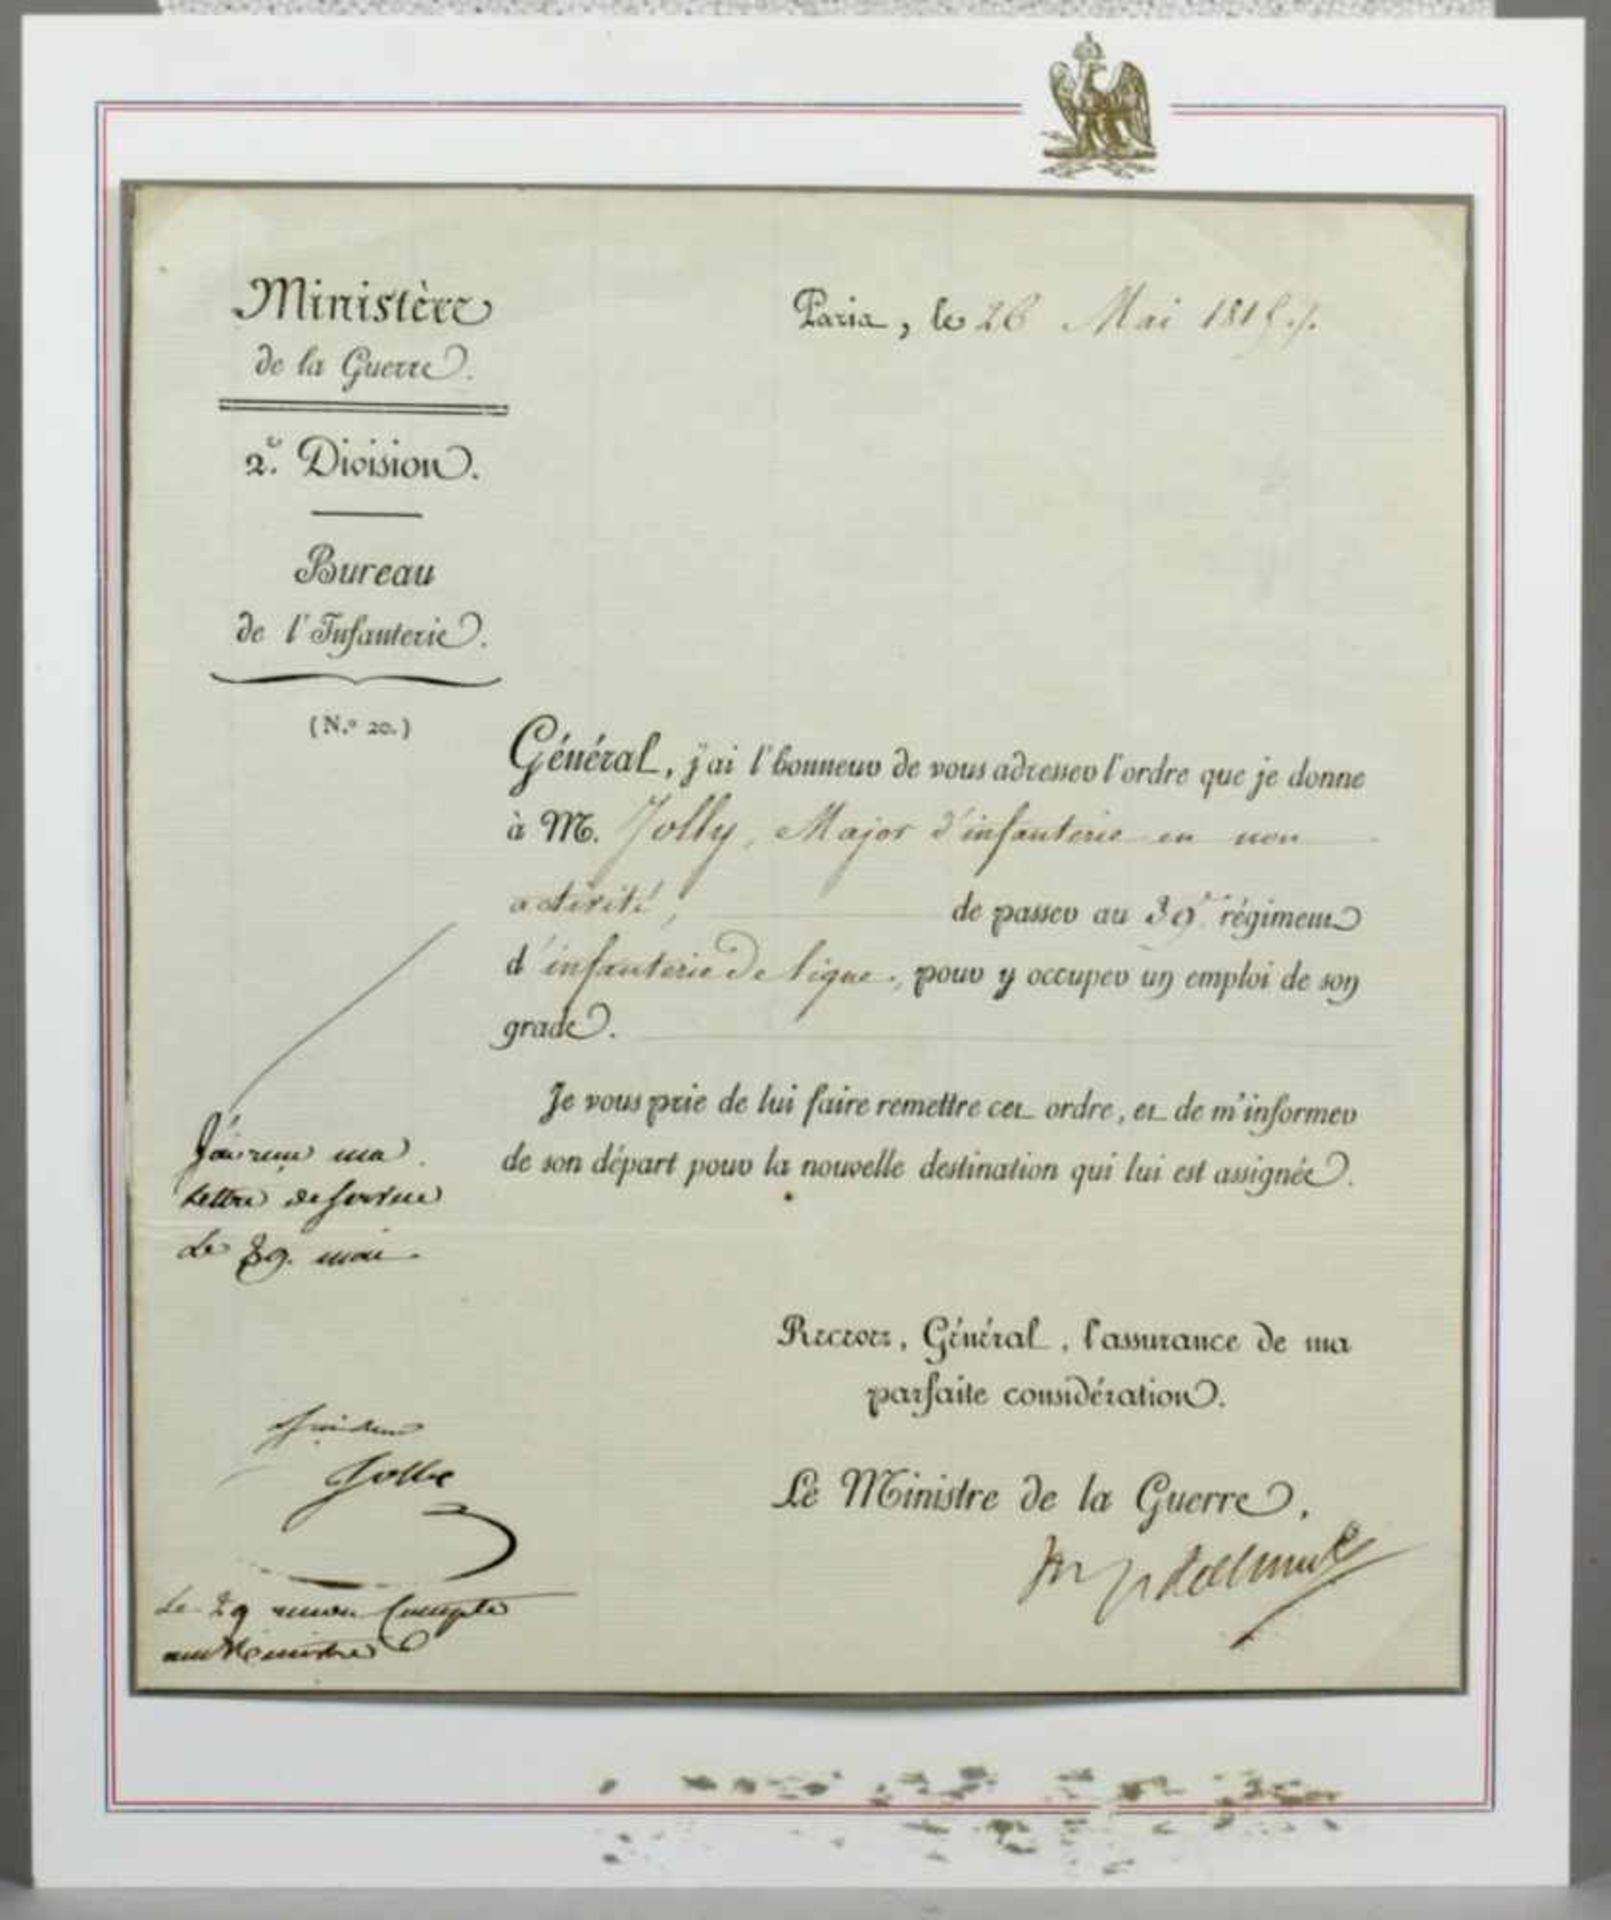 Ministère
de la Guerre.
2.e Division.
Bureau
de l'Infanterie.
(N.o 20.)
Paris, le 26 Mai 1815./.
Général, j'ai l'honneur de vous adresser l'ordre que je donne
à M. Jolly, Major d'infanterie en non
activité, de passer au 39e régiment
d'infanterie de ligne, pour y occuper un emploi de son
grade.
Je vous prie de lui faire remettre cet ordre, et de m'informer
de son départ pour la nouvelle destination qui lui est assignée.
Recevez, Général, l'assurance de ma
parfaite considération.
Le Ministre de la Guerre,
J'ai reçu ma
lettre de service
Le 29. mai
Le 29 rendu Compte
au Ministre